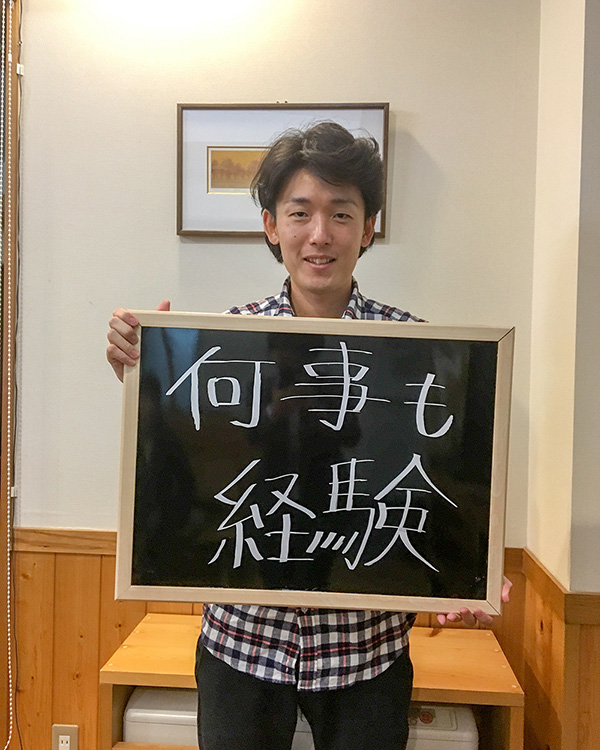 何事も
経験